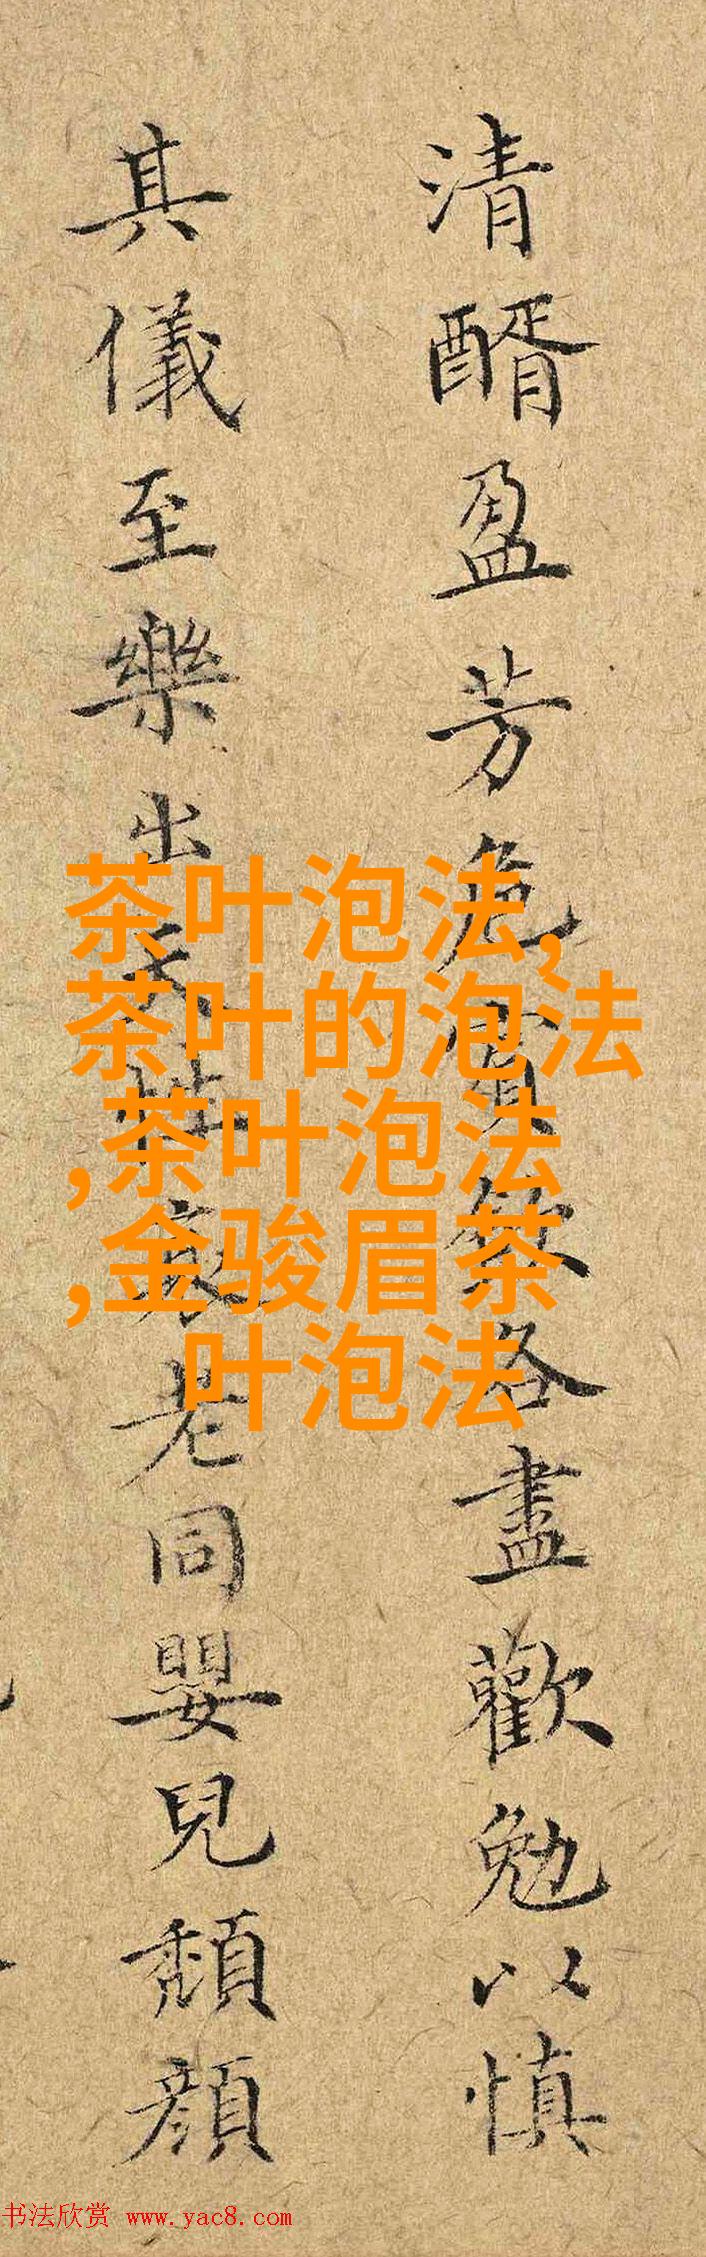 清醑盈芳卮各盡歡勉以慎
其儀至樂出天性衰老同嬰兒頽顔
茶叶泡法,
茶叶的泡法
,茶叶泡法
,金骏眉茶
叶泡法
书法欣赏 www.yac8.com